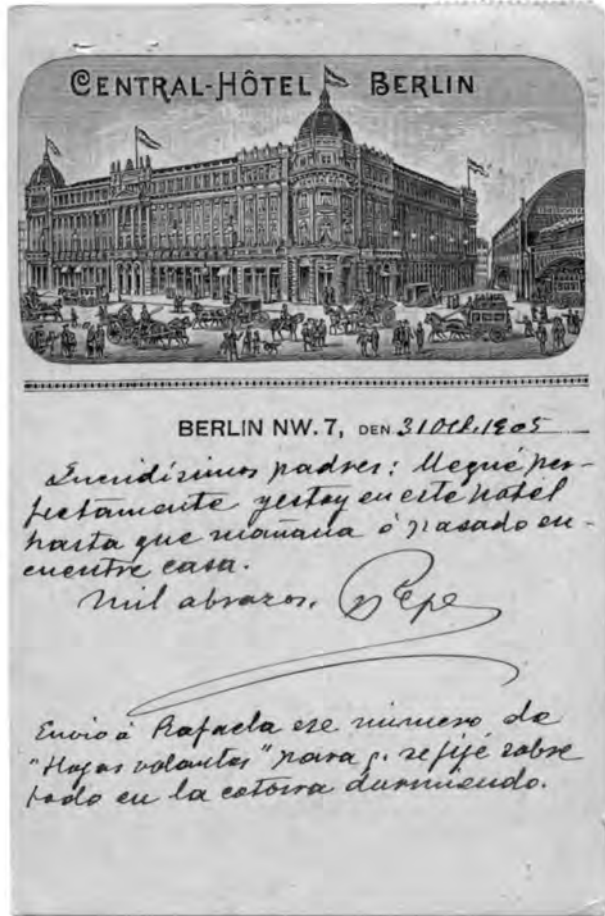 CENTRAL-HÔTEL BERLIN
BERLIN NW. 7, DEN 31 Oct. 1905
Queridísimos padres: Llegué per-
fectamente y estoy en este hotel
hasta que mañana ó pasado en-
cuentre casa.
Mil abrazos. Pepe
Envio á Rafaela ese número de
"Hojas volantes" para q. se fije sobre
todo en la cotorra durmiendo.